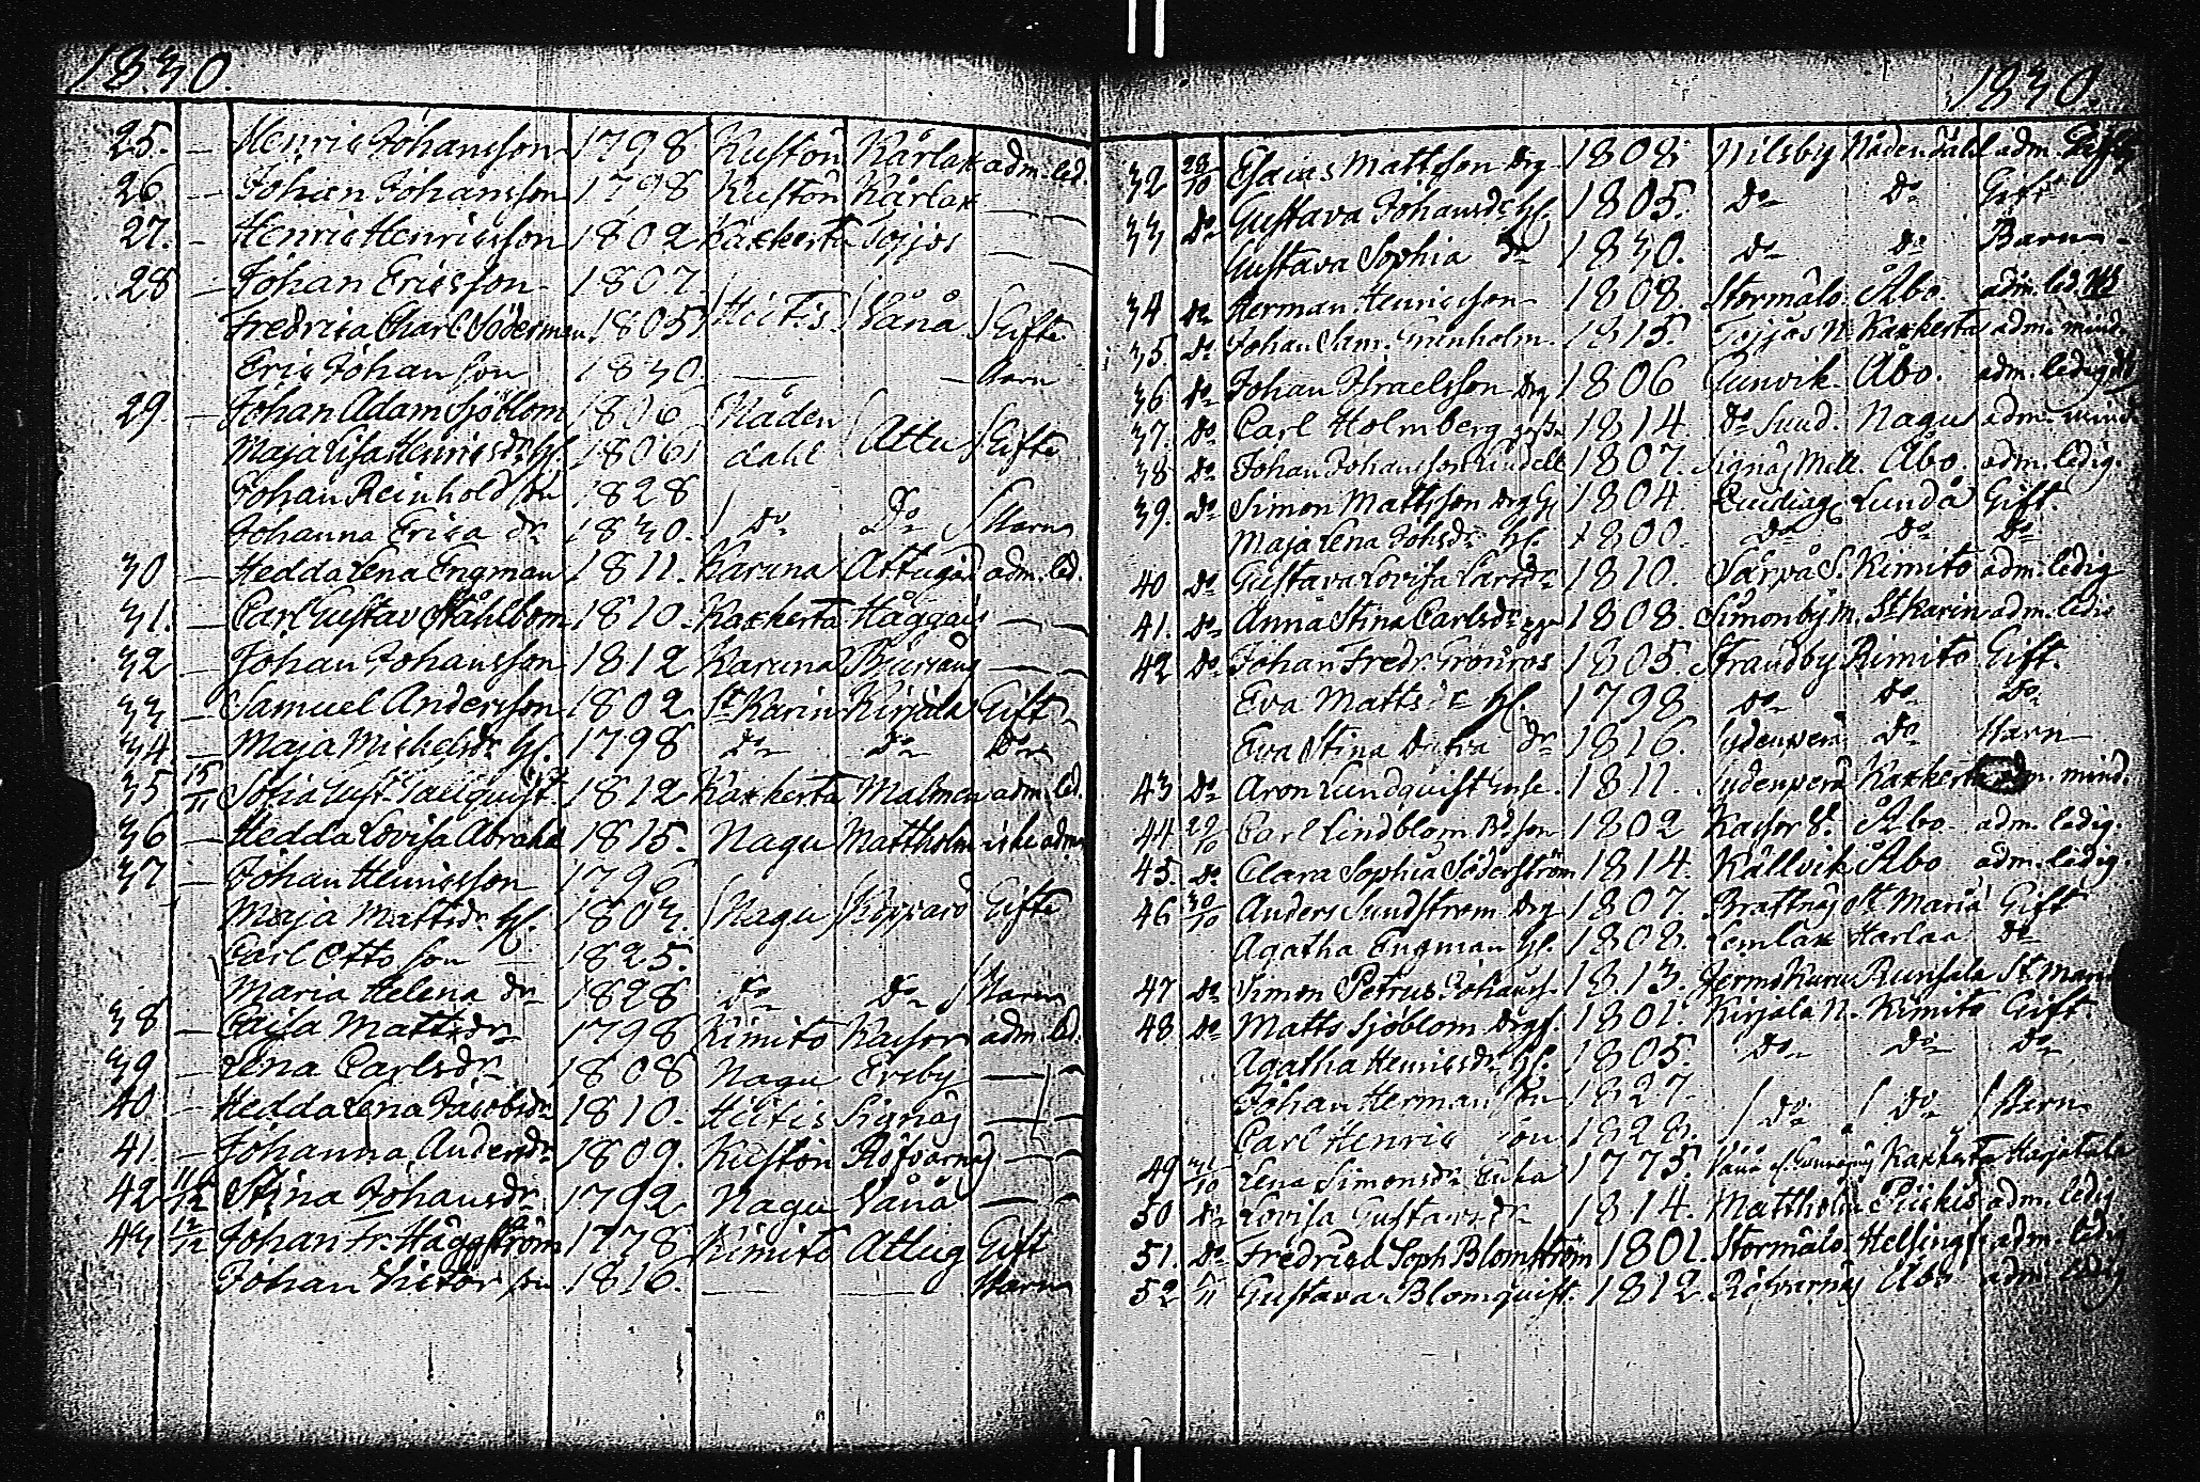 1830.
25. — Henric Johansson 1798 Kustön Kårlax adm. led.
26 — Johan Johansson 1798 Kustön Kårlax — —
27. — Henric Henricsson 1802 Kaxkerta Sojjos — —
28 — Johan Ericsson 1807.
Fredrica Charl. Söderman 1805 Hitis Vånå Gifte
Eric Johan son 1830. — — Barn
29. — Johan Adam Sjöblom 1806 Nåden
Maja Lisa Henricsdr h. 1806 dahl Attu Gifte
Johan Reinhold son 1828
Johanna Erica dr 1830. Do Do Barn
30 — Hedda Lena Engman 1811. Karuna Attugd adm. led.
31. — Carl Gustav Ståhlbom 1810. Kaxkerta Häggäis — —
32 — Johan Johansson 1812 Karuna — —
33 — Samuel Andersson 1802 St Karin Kirjala Gift
34. — Maja Michelsdr h. 1798 Do Do Do
35 15/11 Sofia Gust. 1812 Kaxkerta Malmen adm. led.
36 — Hedda Lovisa Abrahd 1815. Nagu Mattholm icke adm.
37 — Johan Henricsson 1796
Maja Mattsdr h. 1803. Nagu Kopparö Gifte
Carl Otto son — 1825.
Maria Helena dr 1828 Do Do Barn
38 — Caisa Mattsdr 1798 Kimito Kasor adm. led.
39 — Lena Carlsdr 1808 Nagu Ersby — —
40 — Hedda Lena Jacobsdr 1810. Hitis Signäs — —
41. — Johanna Andersdr 1809. Kustön Röfvarnäs — —
42 11/12 Stina Johansdr 1792 Nagu Vånå — —
43 12/12 Johan Fr. Häggström 1778 Kimito Attug Gift
Johan Victor son 1816. — — Barn
1830.
32 28/10 Esaias Mattsson drg 1808 Nilsby Nådendahl adm.
33 Do Gustava Johansdr h. 1805. Do Do Gift
Gustava Sophia dr 1830. Do Do Barn
34 Do Herman Henricsson 1808. Stormälö Åbo. adm. led.
35 Do Johan Sam. Grönholm. 1815. Kaxkerta adm. mind.
36 Do Johan Israelsson drg 1806 Gunvik. Åbo. adm. ledig
37. Do Carl Holmberg 1814 Do Sund. Nagu adm. mind.
38 Do Johan Johansson Lindell 1807. Signäs Mell. Åbo. adm. ledig.
39. Do Simon Mattsson drg 1804. Lundå Gift.
Maja Lena Johsdr h. 1800. Do Do Do
40 Do Gustava Lovisa Larsdr 1810. Särpå S. Kimito adm. ledig
41. Do Anna Stina Carlsdr 1808. Simonby M. St Karin adm. ledig
42 Do Johan Fredr. Grönroos 1805. Strandby Kimito Gift.
Eva Mattsdr h. 1798 Do Do Do
Eva Stina dr 1816. Do Barn
43 Do Aron Lundquist 1811. Kaxkerta adm. mind.
44 29/10 Carl Lindblom 1802 Kasor Åbo adm. ledig.
45. Do Clara Sophia Söderström 1814. Källvik Åbo adm. ledig.
46 30/10 Anders Sundström drg 1807. Brattnäs St Mariä Gift
Agatha Engman h. 1808. Lemlax Harlax Do
47 Do Simon Petrus Johanss. 1813. Runsala St Mariä
48 Do Matts Sjöblom 1801. Kirjala N. Kimito Gift.
Agatha Henricsdr h. 1805. Do Do Do
Johan Herman son 1827.
Carl Henric son 1828. Do Do Barn
49 31/10 Lena Simonsdr Enka 1775. Kaxkerta Harjatula
50 Do Lovisa Gustavsdr 1814. Mattholm Piikis adm. ledig
51. Do Fredrica Soph Blomström 1801. Stormälö Helsingf. adm. ledig
52 5/11 Gustava Blomquist. 1812. Röfvarnäs Åbo adm. ledig